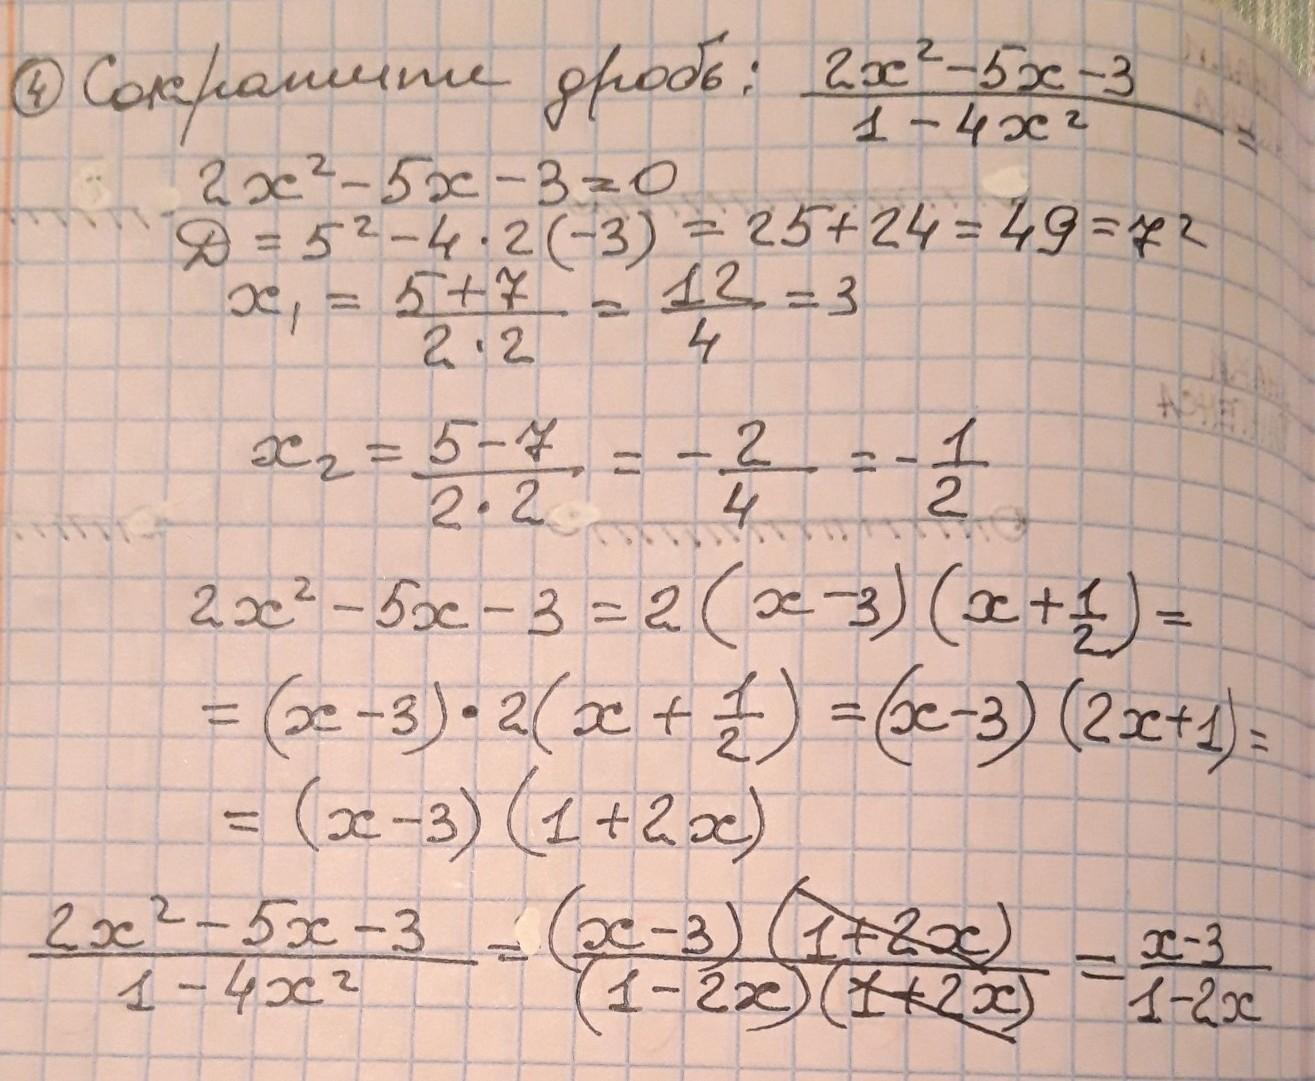 ④ Сократите дробь: (2x² - 5x - 3)/(1 - 4x²) =
2x² - 5x - 3 = 0
D = 5² - 4 · 2(-3) = 25 + 24 = 49 = 7²
x₁ = (5 + 7)/(2 · 2) = 12/4 = 3
x₂ = (5 - 7)/(2 · 2) = - 2/4 = - 1/2
2x² - 5x - 3 = 2(x - 3)(x + 1/2) =
= (x - 3) · 2(x + 1/2) = (x - 3)(2x + 1) =
= (x - 3)(1 + 2x)
(2x² - 5x - 3)/(1 - 4x²) = (x - 3)(1 + 2x)/(1 - 2x)(1 + 2x) = (x - 3)/(1 - 2x)